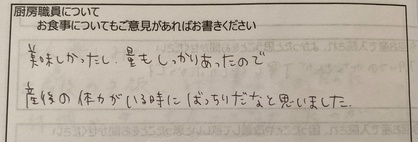 厨房職員について
お食事についてもご意見があればお書きください
美味しかったし、量もしっかりあったので
産後の体力がいる時にばっちりだなと思いました。